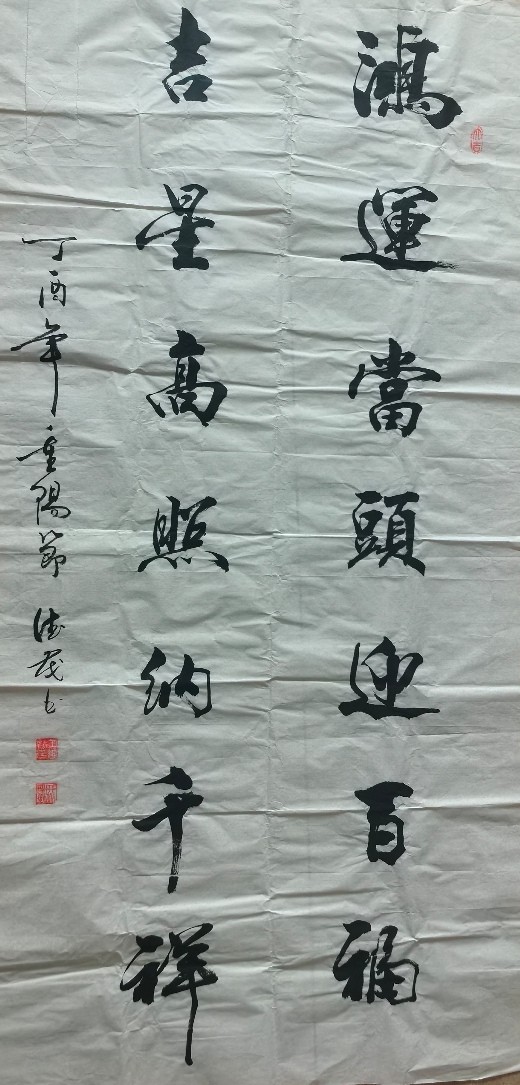 鴻運當頭迎百福
吉星高照納千祥
丁酉年重陽節 德茂书